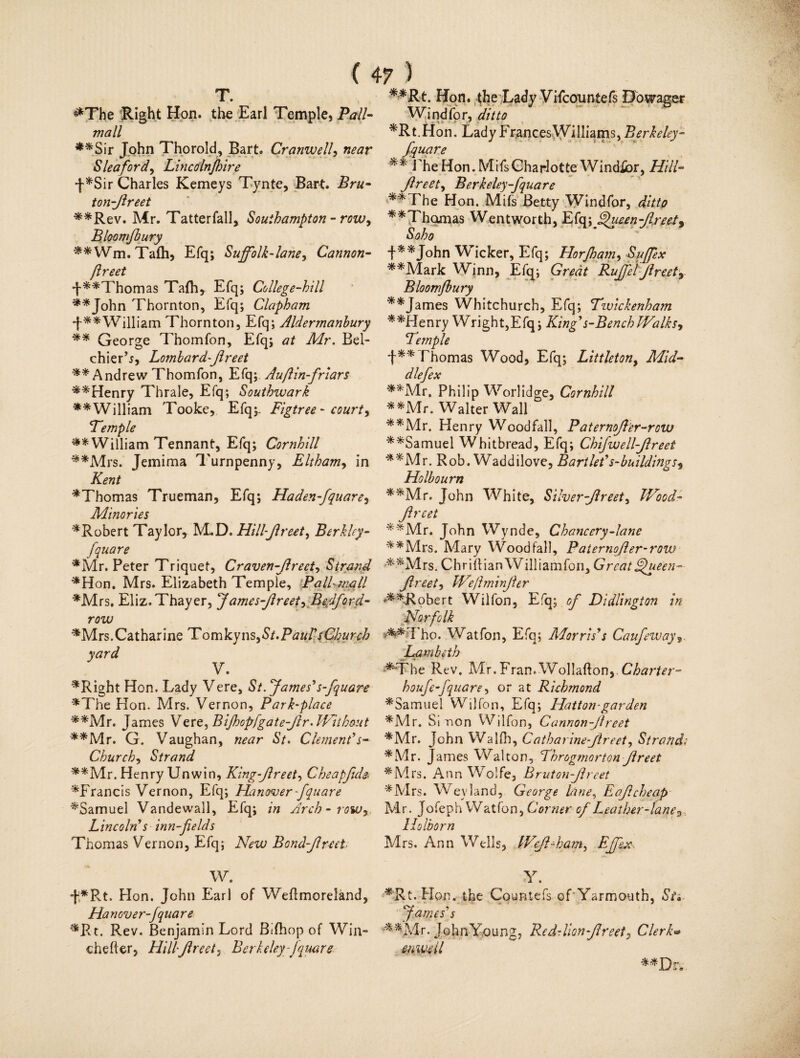 ( 47 )
T.
*The Right Hon. the Earl Temple, Pall-
mall
**Sir John Thorold, Bart. Cranwell, near
Sleaford, Lincolnſhire
†*Sir Charles Kemeys Tynte, Bart. Bru-
ton-ſtreet
**Rev. Mr. Tatterſall, Southampton-row,
Bloomſbury
**Wm. Taſh, Eſq; Suffolk-lane, Cannon-
ſtreet
†**Thomas Taſh, Eſq; College-hill
**John Thornton, Eſq; Clapham
†**William Thornton, Eſq; Aldermanbury
** George Thomſon, Eſq; at Mr. Bel-
chier's, Lombard-ſtreet
**Andrew Thomſon, Eſq; Auſtin-friars
**Henry Thrale, Eſq; Southwark
**William Tooke, Eſq; Figtree-court,
Temple
**William Tennant, Eſq; Cornhill
**Mrs. Jemima Turnpenny, Eltham, in
Kent
*Thomas Trueman, Eſq; Haden-ſquare,
Minories
*Robert Taylor, M.D. Hill-ſtreet, Berkley-
ſquare
*Mr. Peter Triquet, Craven-ſtreet, Strand
*Hon. Mrs. Elizabeth Temple, Pall-mall
*Mrs. Eliz. Thayer, James-ſtreet, Bedford-
row
*Mrs. Catharine Tomkyns, St. Paul's Church
yard
V.
*Right Hon. Lady Vere, St. James's-ſquare
*The Hon. Mrs. Vernon, Park-place
**Mr. James Vere, Biſhopſgate-ſtr. Without
**Mr. G. Vaughan, near St. Clement's-
Church, Strand
**Mr. Henry Unwin, King-ſtreet, Cheapſide
*Francis Vernon, Eſq; Hanover-ſquare
*Samuel Vandewall, Eſq; in Arch-row,
Lincoln's-inn-fields
Thomas Vernon, Eſq; New Bond-ſtreet
W.
†*Rt. Hon. John Earl of Weſtmoreland,
Hanover-ſquare
*Rt. Rev. Benjamin Lord Biſhop of Win-
cheſter, Hill-ſtreet, Berkeley-ſquare
**Rt. Hon. the Lady Viſcounteſs Dowager
Windſor, ditto
*Rt. Hon. Lady Frances Williams, Berkeley-
ſquare
** The Hon. Miſs Charlotte Windſor, Hill-
ſtreet, Berkeley-ſquare
**The Hon. Miſs Betty Windſor, ditto
**Thomas Wentworth, Eſq; Queen-ſtreet,
Soho
†**John Wicker, Eſq; Horſham, Suſſex
**Mark Winn, Eſq; Great Ruſſel ſtreet,
Bloomſbury
**James Whitchurch, Eſq; Twickenham
**Henry Wright, Eſq; King's-Bench Walks,
Temple
†**Thomas Wood, Eſq; Littleton, Mid-
dleſex
**Mr. Philip Worlidge, Cornhill
**Mr. Walter Wall
**Mr. Henry Woodfall, Paternoſter-row
**Samuel Whitbread, Eſq; Chiſwell-ſtreet
**Mr. Rob. Waddilove, Bartlet's-buildings,
Holbourn
**Mr. John White, Silver-ſtreet, Wood-
ſtreet
**Mr. John Wynde, Chancery-lane
**Mrs. Mary Woodfall, Paternoſter-row
**Mrs. Chriſtian Williamſon, Great Queen-
ſtreet, Weſtminſter
**Robert Wilſon, Eſq; of Didlington in
Norfolk
**Tho. Watſon, Eſq; Morris's Cauſeway,
Lambeth
*The Rev. Mr. Fran. Wollaſton, Charter-
houſe-ſquare, or at Richmond
*Samuel Wilſon, Eſq; Hatton-garden
*Mr. Simon Wilſon, Cannon-ſtreet
*Mr. John Walſh, Catharine-ſtreet, Strand
*Mr. James Walton, Throgmorton ſtreet
*Mrs. Ann Wolfe, Bruton-ſtreet
*Mrs. Weyland, George lane, Eaſtcheap
Mr. Joſeph Watſon, Corner of Leather-lane,
Holborn
Mrs. Ann Wells, Weſt-ham, Eſſex
Y.
*Rt. Hon. the Counteſs of Yarmouth, St.
James's
**Mr. John Young, Red-lion-ſtreet, Clerk-
enwell
**Dr.